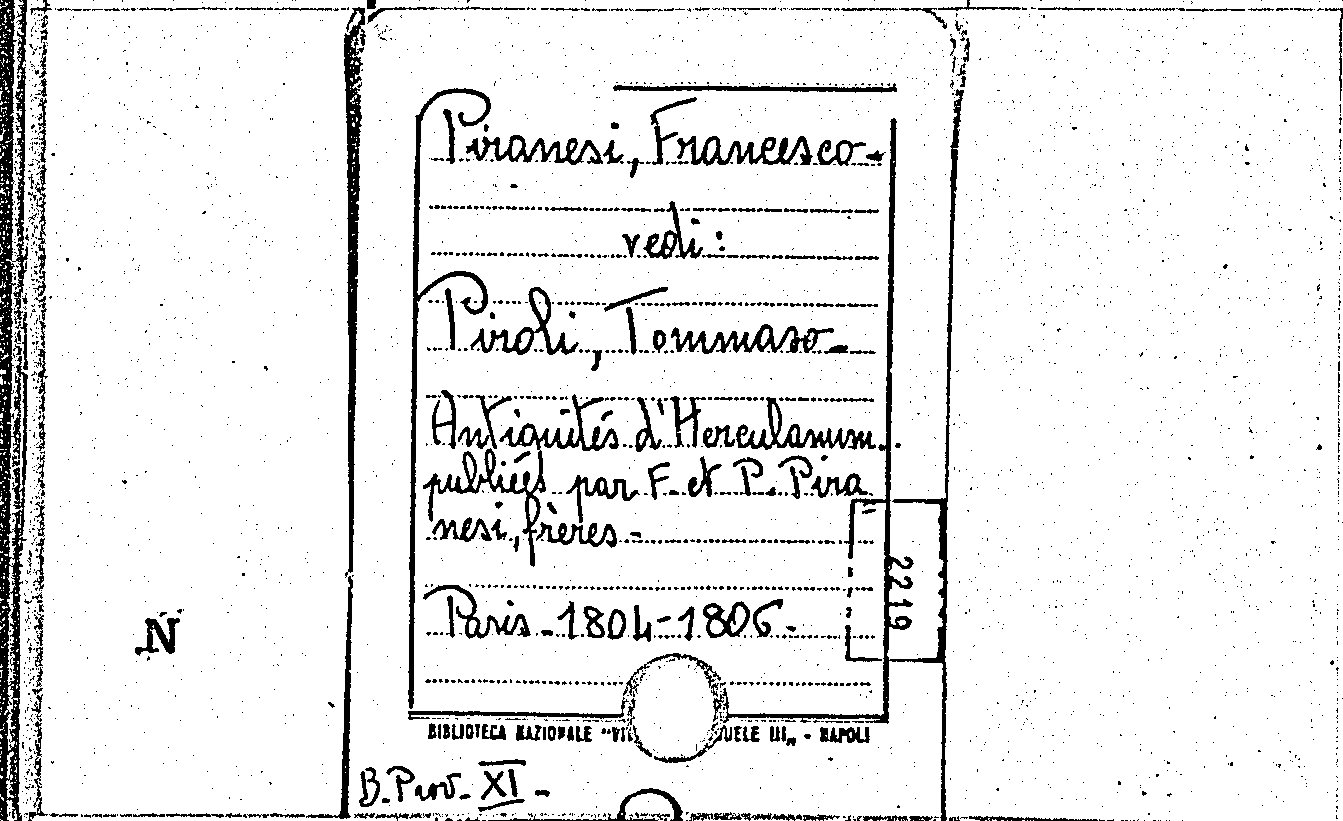 Piranesi, Francesco-
vedi:
Piroli, Tommaso-
Antiquités d'Herculanum..
publiées par F. et P. Pira
nesi, frères-
2219
Paris-1804-1806.
N
BIBLIOTECA NAZIONALE "VI UELE III„ - NAPOLI
B. Prov. XI-